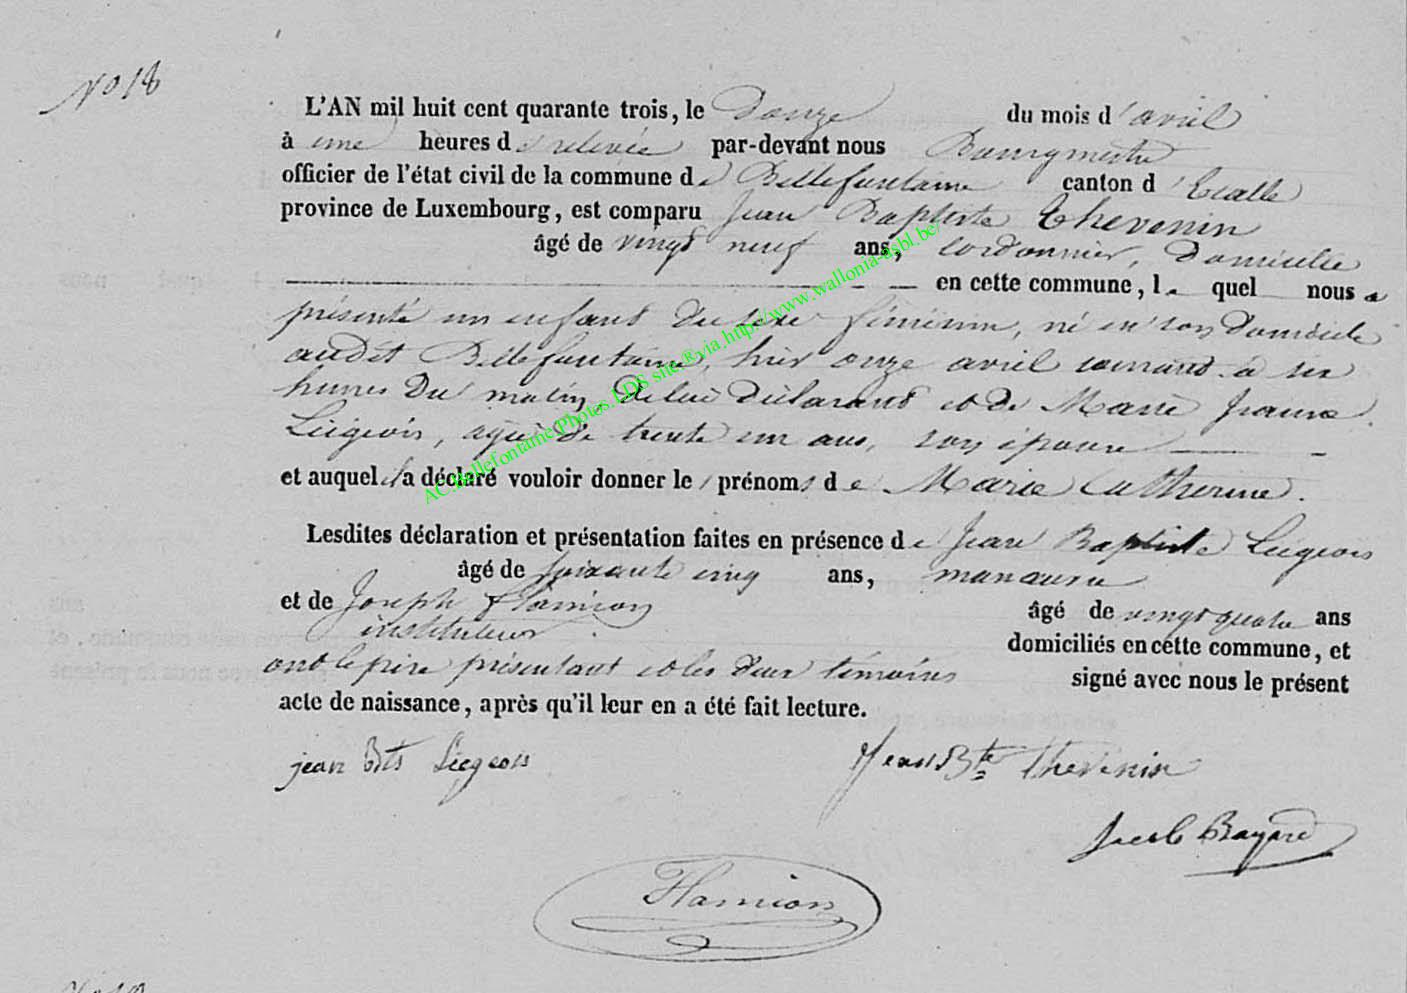 No 18
L'AN mil huit cent quarante trois, le Douze du mois d'avril
à une heures de relevée par-devant nous Bourgmestre
officier de l'état civil de la commune de Bellefontaine canton d'Etalle
province de Luxembourg, est comparu Jean Baptiste Thevenin
âgé de vingt neuf ans, cordonnier, domicilié
en cette commune, le quel nous a
présenté un enfant du sexe féminin, né en son domicile
audit Bellefontaine, hier onze avril courant à six
heures du matin, de lui déclarant et de Marie Jeanne
Liégeois, agée de trente un ans, son épouse
et auquel il a déclaré vouloir donner les prénoms de Marie Catherine.
Lesdites déclaration et présentation faites en présence de Jean Baptiste Liégeois
âgé de soixante cinq ans, manœuvre
et de Joseph Flamion âgé de vingt quatre ans
instituteur domiciliés en cette commune, et
ont le père présentant et les deux témoins signé avec nous le présent
acte de naissance, après qu'il leur en a été fait lecture.
jean Bts Liégeois Jean Bte Thevenin
Jacob Bayard
Flamion
AC.Bellefontaine.Photos.LDS site.®via.http://www.wallonia-asbl.be/